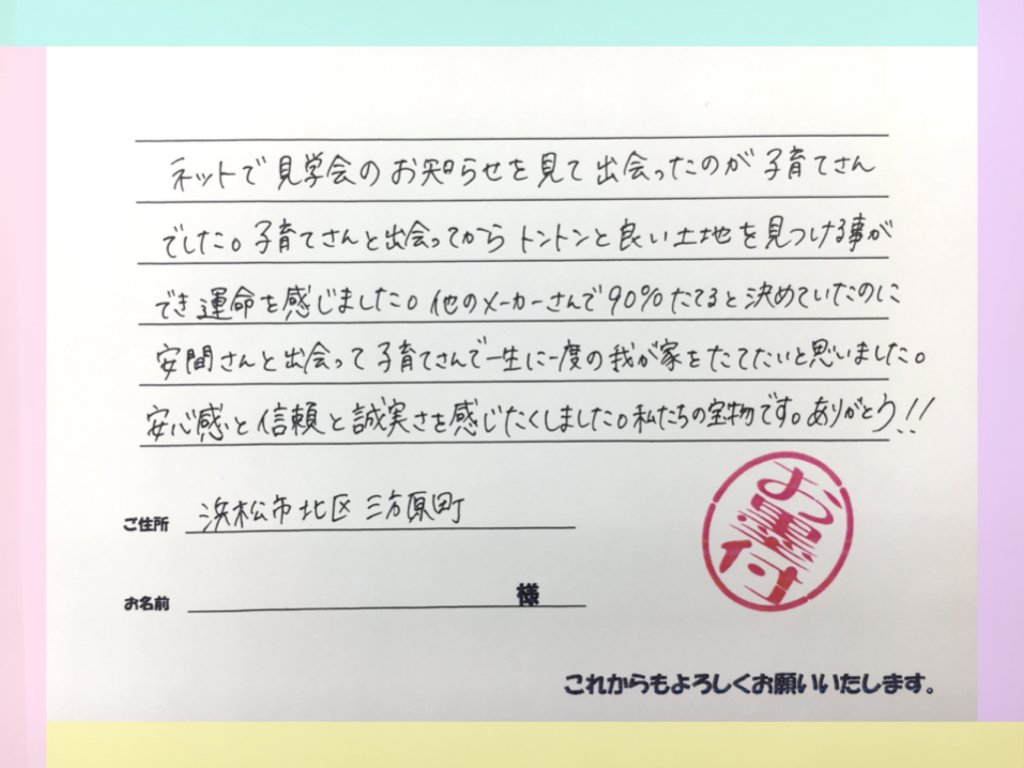 ネットで見学会のお知らせを見て出会ったのが子育てさん
でした。子育てさんと出会ってからトントンと良い土地を見つける事が
でき運命を感じました。他のメーカーさんで90%たてると決めていたのに
安間さんと出会って子育てさんで一生に一度の我が家をたてたいと思いました。
安心感と信頼と誠実さを感じたくしました。私たちの宝物です。ありがとう!!
ご住所 浜松市北区三方原町
お名前 様
お墨付
これからもよろしくお願いいたします。